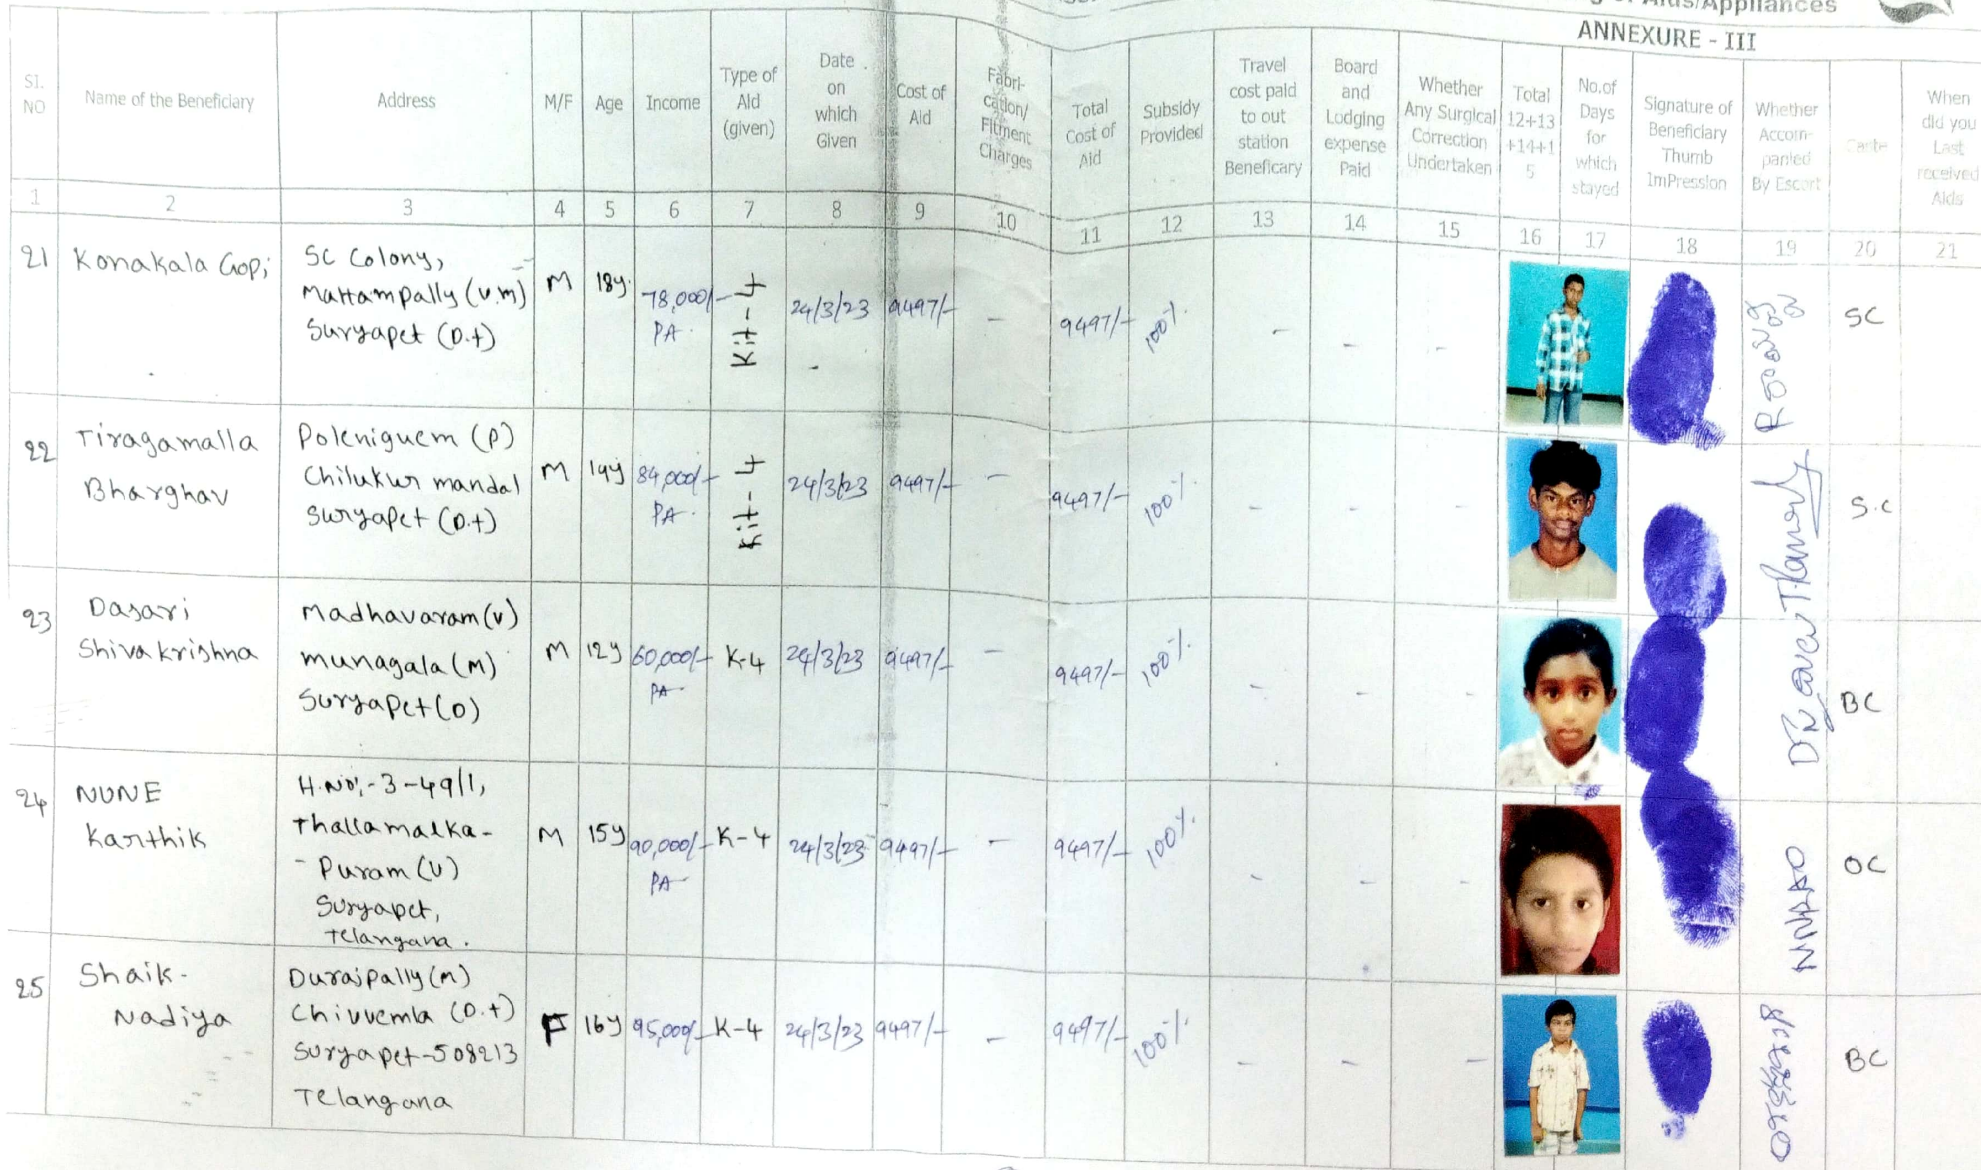 Aids/Appliances
ANNEXURE - III
Sl. NO
Name of the Beneficiary
Address
M/F
Age
Income
Type of Aid (given)
Date on which Given
Cost of Aid
Fabri-cation/ Fitment Charges
Total Cost of Aid
Subsidy Provided
Travel cost paid to out station Beneficary
Board and Lodging expense Paid
Whether Any Surgical Correction Undertaken
Total 12+13 +14+1 5
No.of Days for which stayed
Signature of Beneficiary Thumb ImPression
Whether Accom-panied By Escort
Caste
When did you Last received Aids
1 2 3 4 5 6 7 8 9 10 11 12 13 14 15 16 17 18 19 20 21
21 Konakala Gopi
SC Colony,
Mattampally (v.m)
Suryapet (D.t)
M 18y. 78,000/- PA. Kit-4 24/3/23 9497/- - 9497/- 100% - - - SC
22 Tiragamalla
Bharghav
Poleniguem (P)
Chilukur mandal
Suryapet (D.t)
M 14y 84,000/- PA. Kit-4 24/3/23 9497/- - 9497/- 100% - - - S.C
23 Dasari
Shiva krishna
Madhavaram (v)
munagala (m)
Suryapet (D)
M 12y 60,000/- PA K-4 24/3/23 9497/- - 9497/- 100% - - - BC
24 NUNE
Karthik
H.No:-3-49/1,
Thallamalka-
-Puram (v)
Suryapet,
Telangana.
M 15y 90,000/- PA K-4 24/3/23 9497/- - 9497/- 100% - - - NNRAO OC
25 Shaik-
Nadiya
Durajpally (m)
Chivvemla (D.t)
Suryapet-508213
Telangana
F 16y 95,000/- K-4 24/3/23 9497/- - 9497/- 100% - - - BC